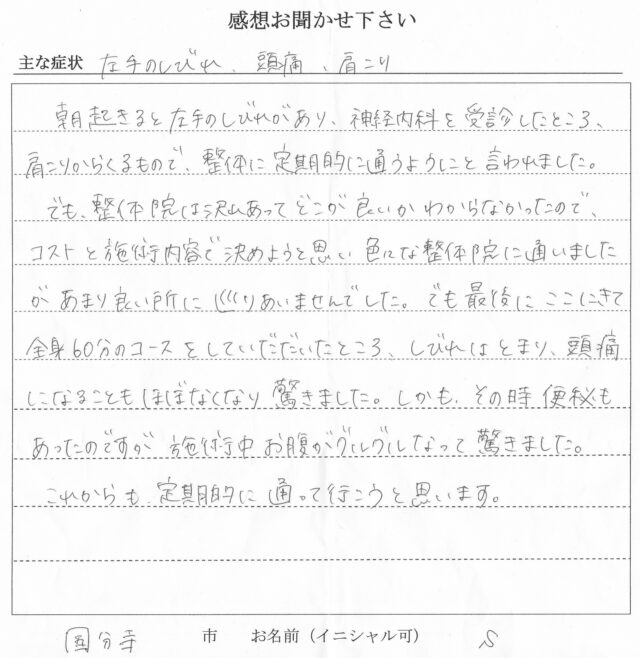 感想お聞かせ下さい
主な症状 左手のしびれ、頭痛、肩こり
朝起きると左手のしびれがあり、神経内科を受診したところ、
肩こりからくるもので、整体に定期的に通うようにと言われました。
でも、整体院は沢山あってどこが良いかわからなかったので、
コストと施術内容で決めようと思い色々な整体院に通いました
があまり良い所に巡りあいませんでした。でも最後にここにきて
全身60分のコースをしていだだいたところ、しびれはとまり、頭痛
になることもほぼなくなり驚きました。しかも、その時便秘も
あったのですが施術中お腹がグルグルなって驚きました。
これからも、定期的に通って行こうと思います。
国分寺 市 お名前（イニシャル可） S